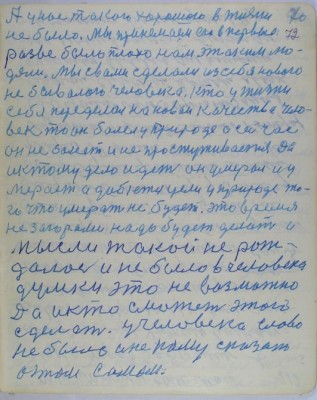 А у нас такого хорошего в жизни 70
не было. Мы принимаем его впервые. 72.
разве было плохо нам этаким лю-
дям. Мы с вами сделали из себя нового
не бывалого человека. Кто у жизни
себя переделал на новой качестве чело-
век то он более у природе а сейчас
он не болеет и не простуживается. Да
и к тому дело идет он умерал и у
мерает а добется цели у природе то-
го что умерат не будет. это время
не за горами. надо будет делат и
мысли такой не рож
далос и не было в человека
думки это не возможно
Да и кто сможет этого
сделат. у человека слово
не было и не кому сказат
о этом самом.